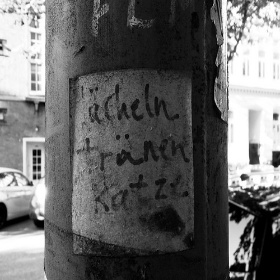 lächeln
tränen
Katze